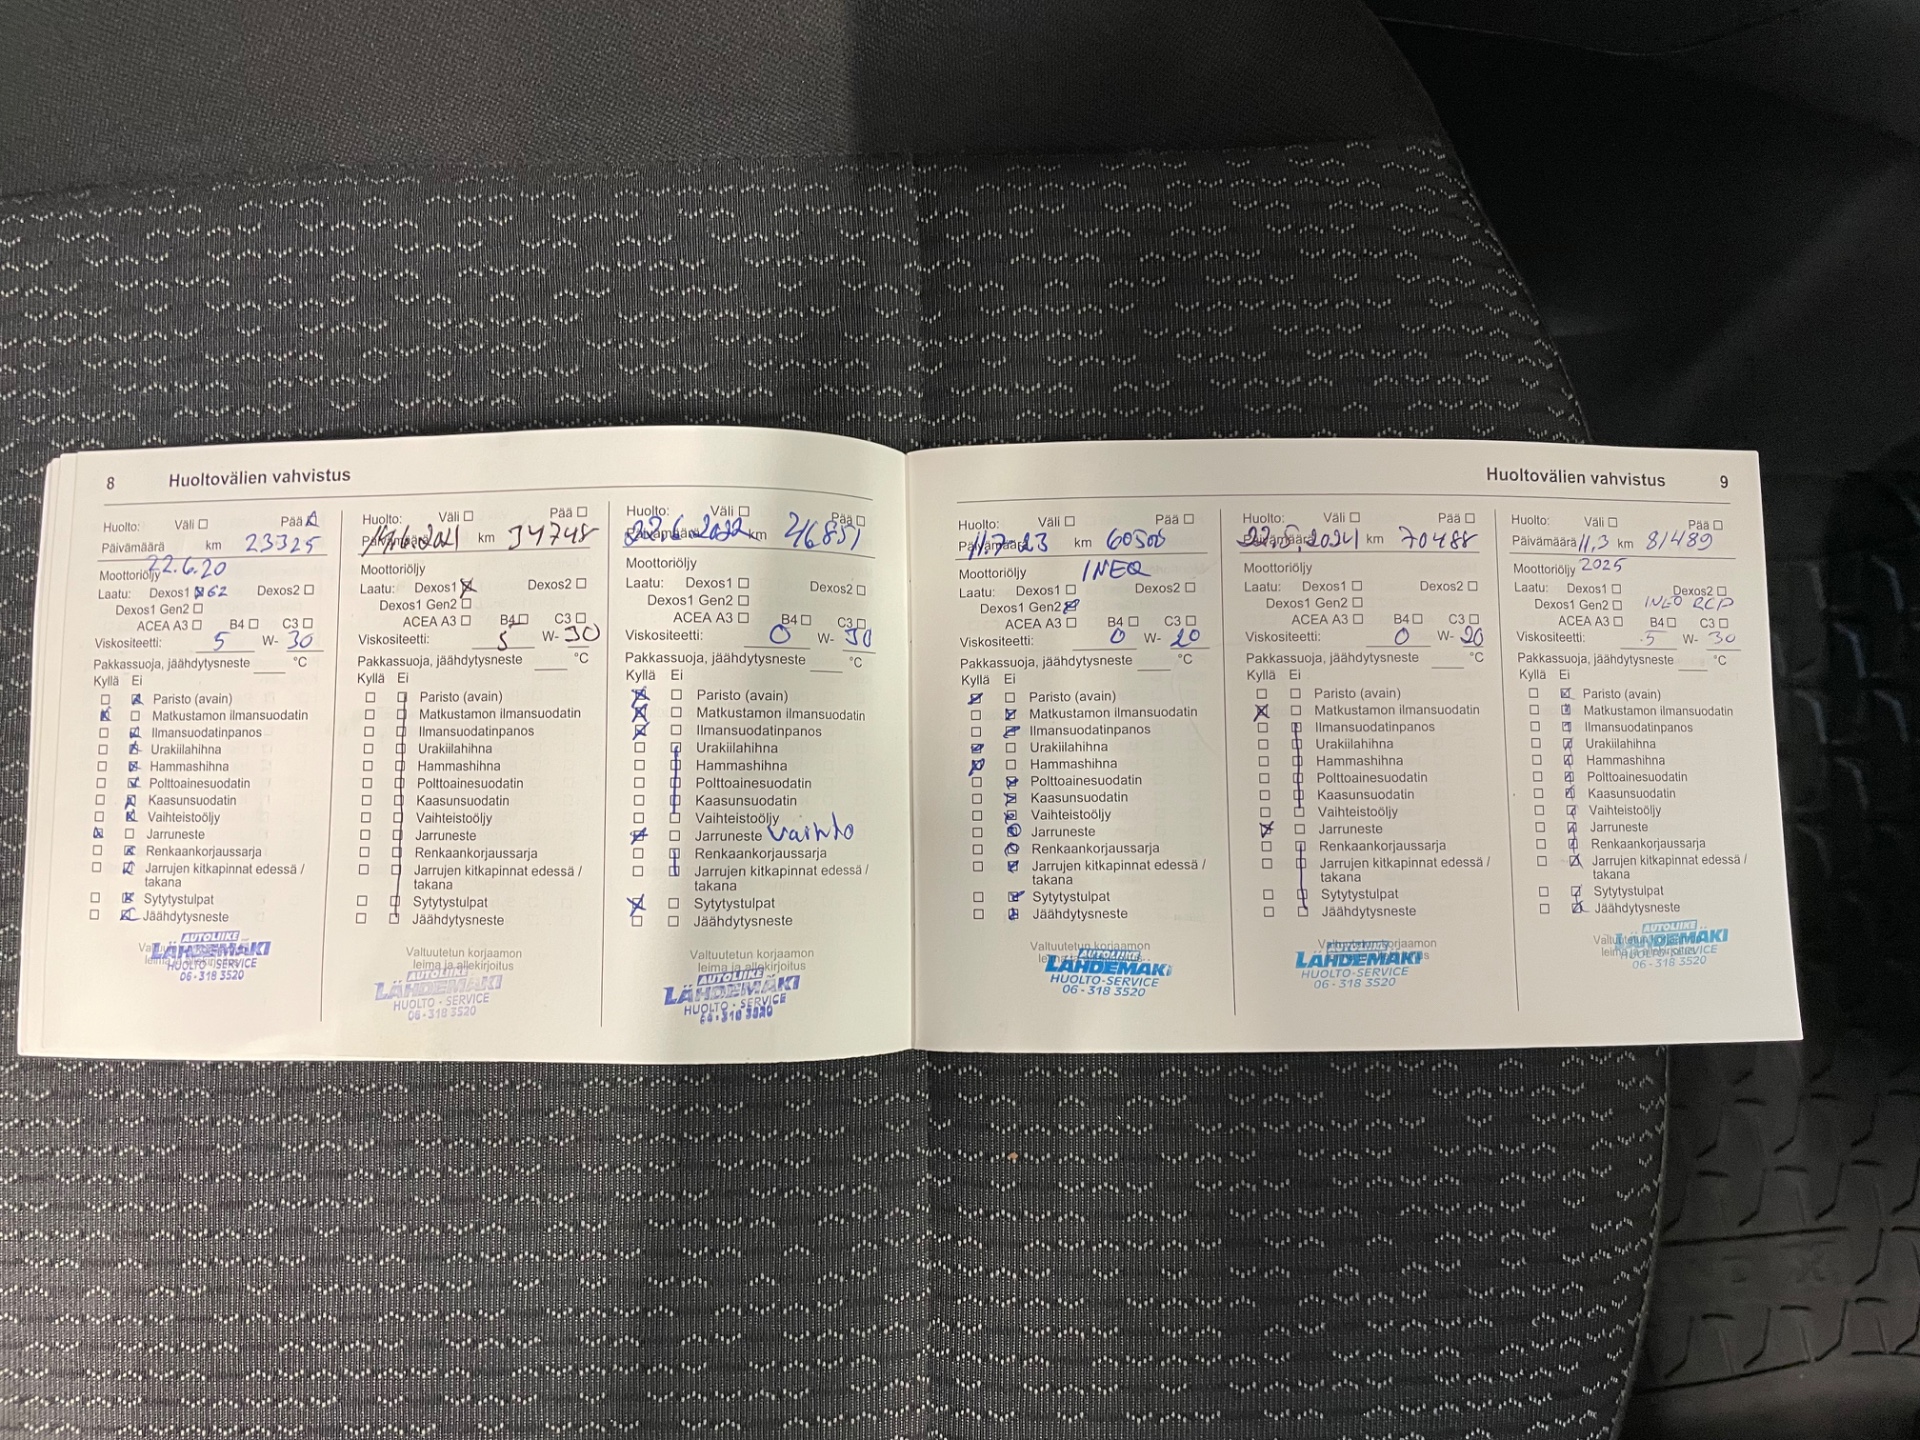 8 Huoltovälien vahvistus
Huolto: Väli Pää
Päivämäärä km 23325
22.6.20
Moottoriöljy
Laatu: Dexos1 Dexos2
Dexos1 Gen2
ACEA A3 B4 C3
Viskositeetti: 5 W- 30
Pakkassuoja, jäähdytysneste °C
Kyllä Ei
Paristo (avain)
Matkustamon ilmansuodatin
Ilmansuodatinpanos
Urakiilahihna
Hammashihna
Polttoainesuodatin
Kaasunsuodatin
Vaihteistoöljy
Jarruneste
Renkaankorjaussarja
Jarrujen kitkapinnat edessä /
takana
Sytytystulpat
Jäähdytysneste
AUTOLIIKE
LÄHDEMÄKI
HUOLTO - SERVICE
06 - 318 3520
Huolto: Väli Pää
Päivämäärä km 34748
Moottoriöljy
Laatu: Dexos1 Dexos2
Dexos1 Gen2
ACEA A3 B4 C3
Viskositeetti: 5 W- 30
Pakkassuoja, jäähdytysneste °C
Kyllä Ei
Paristo (avain)
Matkustamon ilmansuodatin
Ilmansuodatinpanos
Urakiilahihna
Hammashihna
Polttoainesuodatin
Kaasunsuodatin
Vaihteistoöljy
Jarruneste
Renkaankorjaussarja
Jarrujen kitkapinnat edessä /
takana
Sytytystulpat
Jäähdytysneste
Valtuutetun korjaamon
leima ja allekirjoitus
AUTOLIIKE
LÄHDEMÄKI
HUOLTO - SERVICE
06 - 318 3520
Huolto: Väli Pää
Päivämäärä 22.6.2022 km 46851
Moottoriöljy
Laatu: Dexos1 Dexos2
Dexos1 Gen2
ACEA A3 B4 C3
Viskositeetti: 0 W- 30
Pakkassuoja, jäähdytysneste °C
Kyllä Ei
Paristo (avain)
Matkustamon ilmansuodatin
Ilmansuodatinpanos
Urakiilahihna
Hammashihna
Polttoainesuodatin
Kaasunsuodatin
Vaihteistoöljy
Jarruneste vaihto
Renkaankorjaussarja
Jarrujen kitkapinnat edessä /
takana
Sytytystulpat
Jäähdytysneste
Valtuutetun korjaamon
leima ja allekirjoitus
AUTOLIIKE
LÄHDEMÄKI
HUOLTO - SERVICE
Huoltovälien vahvistus 9
Huolto: Väli Pää
Päivämäärä 11.7-23 km 60506
Moottoriöljy INEO
Laatu: Dexos1 Dexos2
Dexos1 Gen2
ACEA A3 B4 C3
Viskositeetti: 0 W- 20
Pakkassuoja, jäähdytysneste °C
Kyllä Ei
Paristo (avain)
Matkustamon ilmansuodatin
Ilmansuodatinpanos
Urakiilahihna
Hammashihna
Polttoainesuodatin
Kaasunsuodatin
Vaihteistoöljy
Jarruneste
Renkaankorjaussarja
Jarrujen kitkapinnat edessä /
takana
Sytytystulpat
Jäähdytysneste
Valtuutetun korjaamon
LÄHDEMÄKI
HUOLTO-SERVICE
06 - 318 3520
Huolto: Väli Pää
Päivämäärä km 70488
Moottoriöljy
Laatu: Dexos1 Dexos2
Dexos1 Gen2
ACEA A3 B4 C3
Viskositeetti: 0 W- 20
Pakkassuoja, jäähdytysneste °C
Kyllä Ei
Paristo (avain)
Matkustamon ilmansuodatin
Ilmansuodatinpanos
Urakiilahihna
Hammashihna
Polttoainesuodatin
Kaasunsuodatin
Vaihteistoöljy
Jarruneste
Renkaankorjaussarja
Jarrujen kitkapinnat edessä /
takana
Sytytystulpat
Jäähdytysneste
AUTOLIIKE
LÄHDEMÄKI
HUOLTO-SERVICE
06 - 318 3520
Huolto: Väli Pää
Päivämäärä 11.3 km 81489
Moottoriöljy 2025
Laatu: Dexos1 Dexos2
Dexos1 Gen2 INEO
ACEA A3 B4 C3
Viskositeetti: 5 W- 30
Pakkassuoja, jäähdytysneste °C
Kyllä Ei
Paristo (avain)
Matkustamon ilmansuodatin
Ilmansuodatinpanos
Urakiilahihna
Hammashihna
Polttoainesuodatin
Kaasunsuodatin
Vaihteistoöljy
Jarruneste
Renkaankorjaussarja
Jarrujen kitkapinnat edessä /
takana
Sytytystulpat
Jäähdytysneste
AUTOLIIKE
LÄHDEMÄKI
HUOLTO-SERVICE
06 - 318 3520